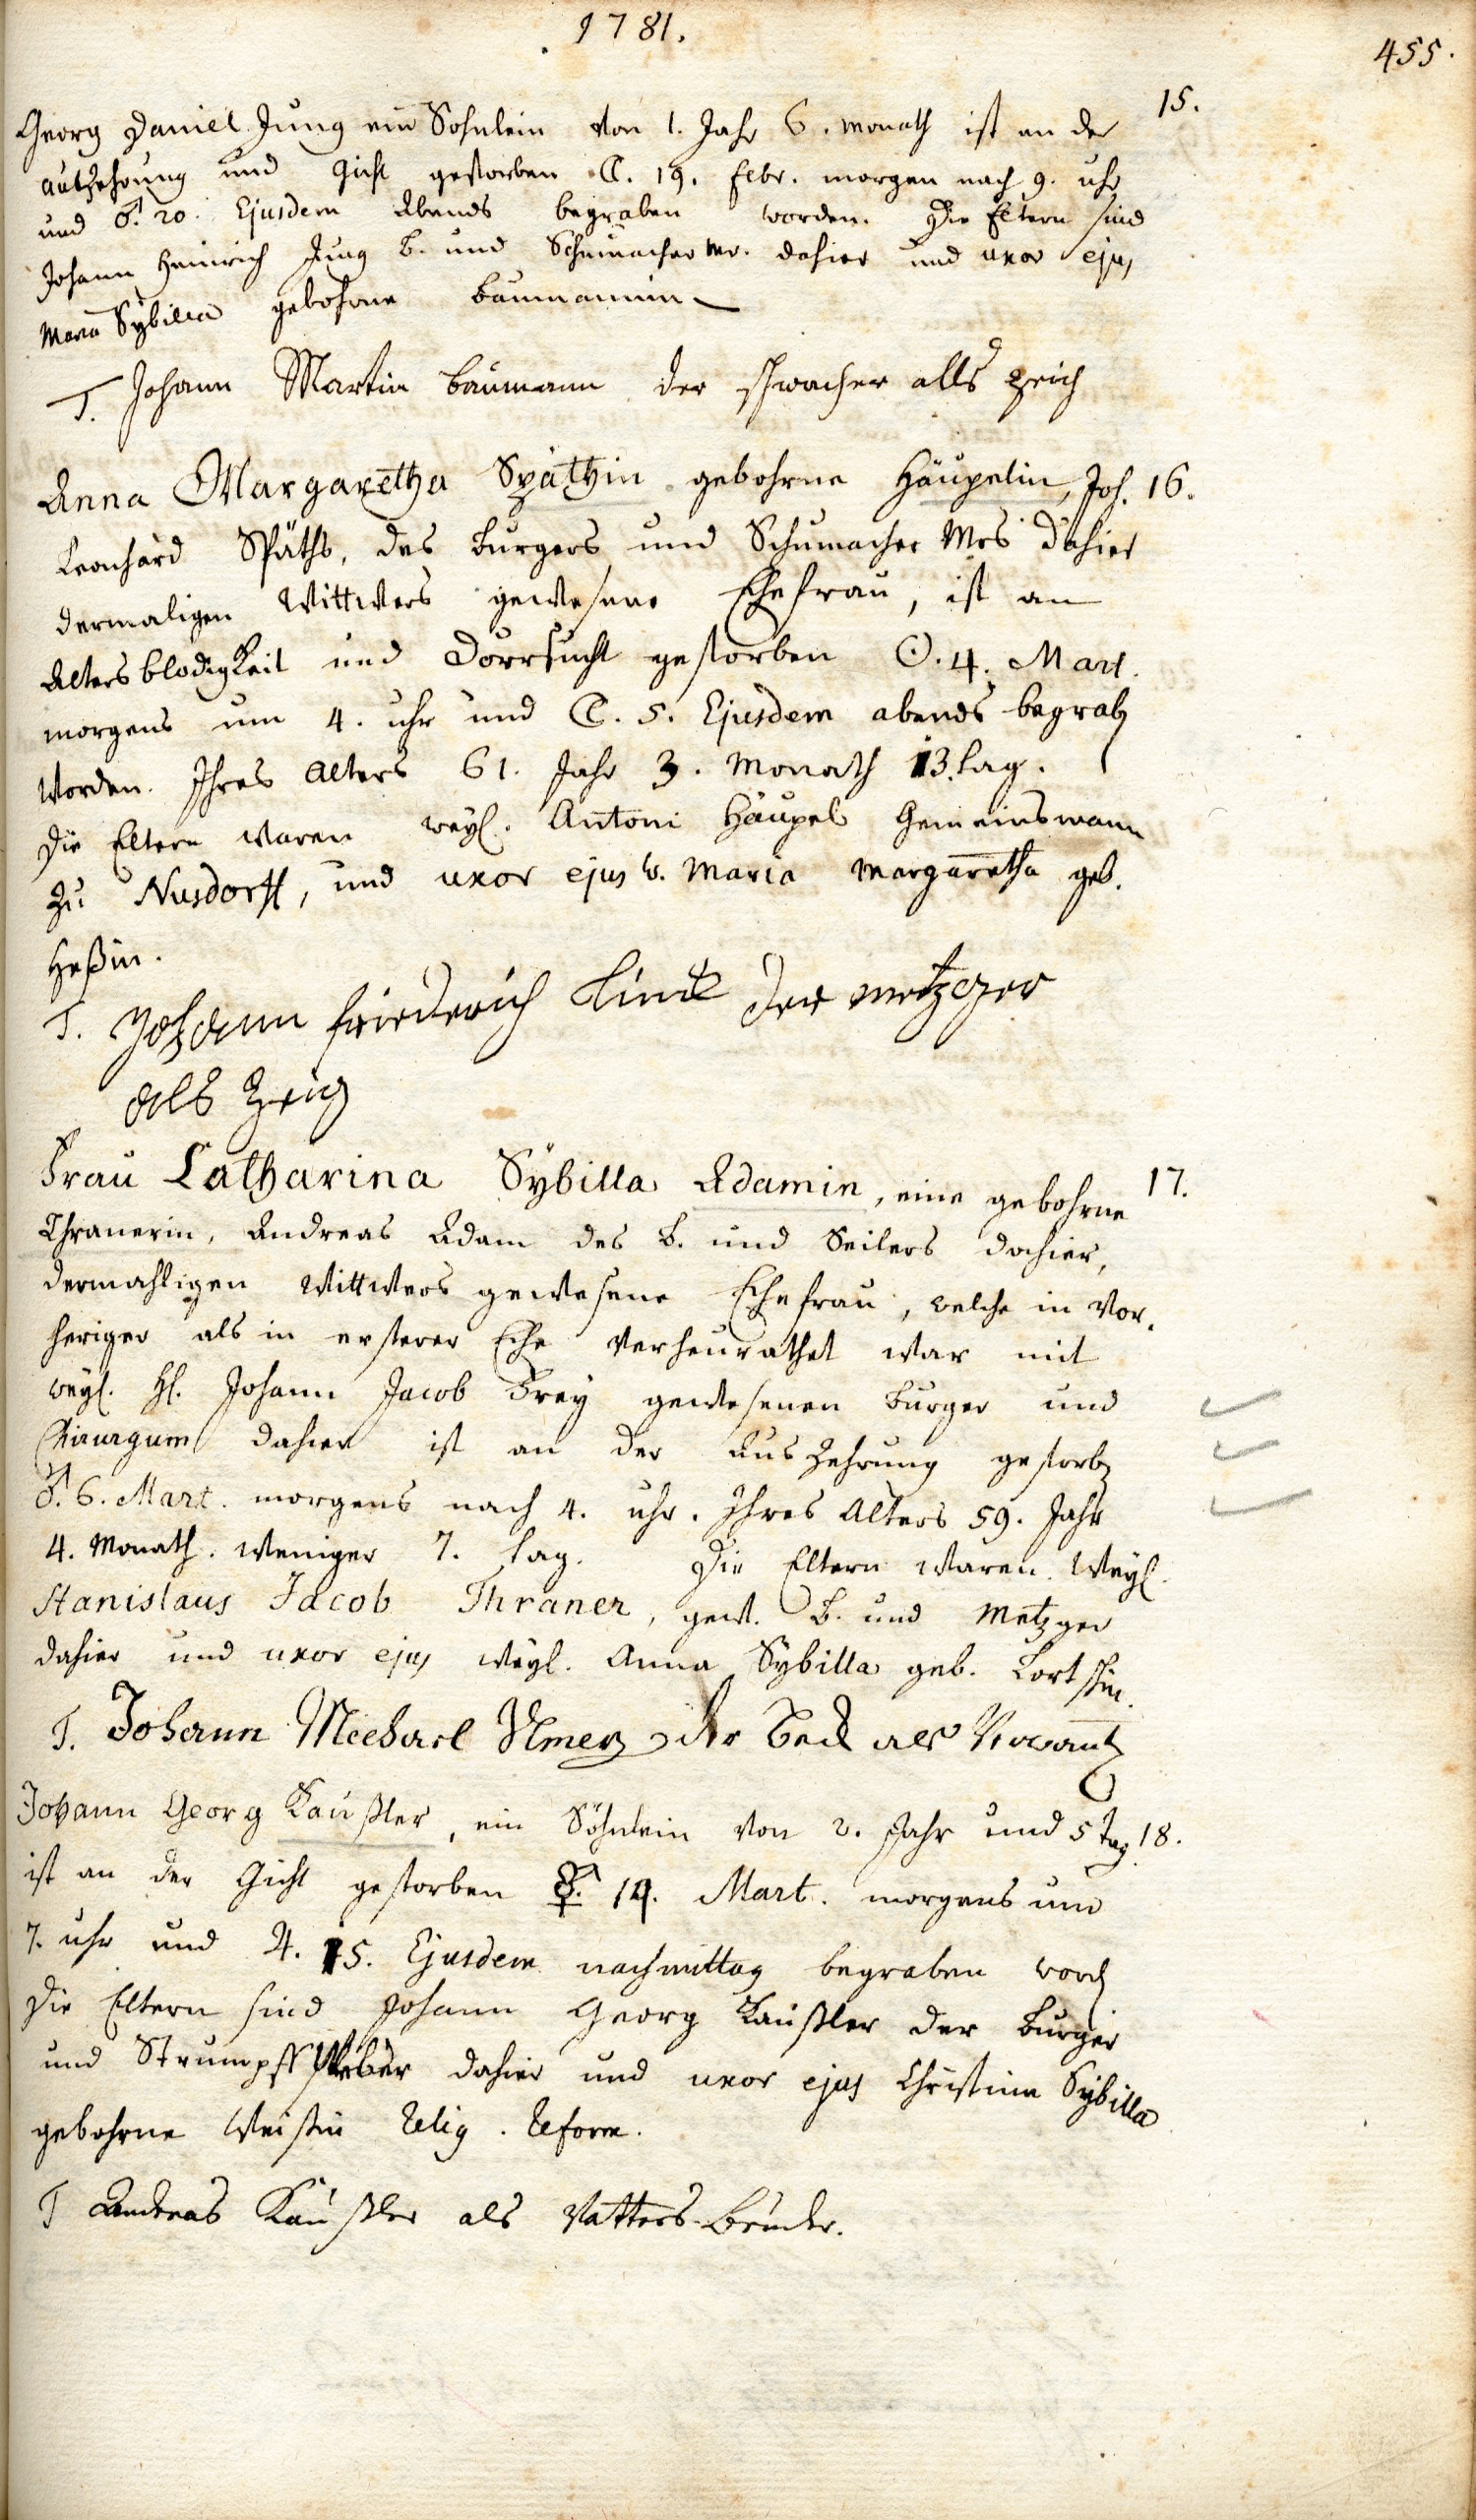 1781.
455.
15.
Georg Daniel Jung ein Söhnlein von 1. Jahr 6. monath ist an der
Autzehrung und Gicht gestorben ☾. 19. Febr. morgen nach 9. uhr
und ♂. 20. Ejusdem Abends begraben worden. Die Eltern sind
Johann Heinrich Jung b. und Schumacher Mr. dahier und uxor ejus
Maria Sybilla gebohrne Baumännin
T. Johann Martin Baumann der schwacher alls zeich
Anna Margaretha Späthin gebohrne Häupelin, Joh. 16.
Leonhard Späths, des Burgers und Schumacher Mrs dahier
dermaligen Wittwers gewesene Ehefrau, ist an
Alters blödigkeit und Dörrsucht gestorben ☉. 4. Mart.
morgens um 4. uhr und ☾. 5. Ejusdem abends begrab
worden. Ihres Alters 61. Jahr 3. Monath 13. tag.
Die Eltern waren weyl. Antoni Häupel Gemeinsmann
zu Nusdorff, und uxor ejus w. Maria Margaretha geb.
Heßin.
T. Johann Friederich Linck der metzger
als Zeug
Frau Catharina Sybilla Adamin, eine gebohrne 17.
Thranerin, Andreas Adam des b. und Seilers dahier,
dermahligen Wittwers gewesene Ehefrau, welche in vor-
heriger als in ersterer Ehe verheurathet war mit
weyl. H. Johann Jacob Frey gewesenen Burger und
Chirurgum dahier ist an der Auszehrung gestorb
♂. 6. Mart. morgens nach 4. uhr. Ihres Alters 59. Jahr
4. Monath. weniger 7. tag. Die Eltern waren. Weyl.
Stanislaus Jacob Thraner, gew. b. und Metzger
dahier und uxor ejus weyl. Anna Sybilla geb. Lortschin.
T. Johann Michael Ulmer der Beck als
Johann Georg Kaußler, ein Söhnlein von 2. Jahr und 5 Tag. 18.
ist an der Gicht gestorben ☿. 14. Mart. morgens um
7. uhr und ♃. 15. Ejusdem nachmittag begraben word
Die Eltern sind Johann Georg Kaußler der Burger
und Strumpff Weber dahier und uxor ejus Christina Sybilla
gebohrne Weistin Relig. Reform.
T Andreas Kaußler als Vatters-Bruder.